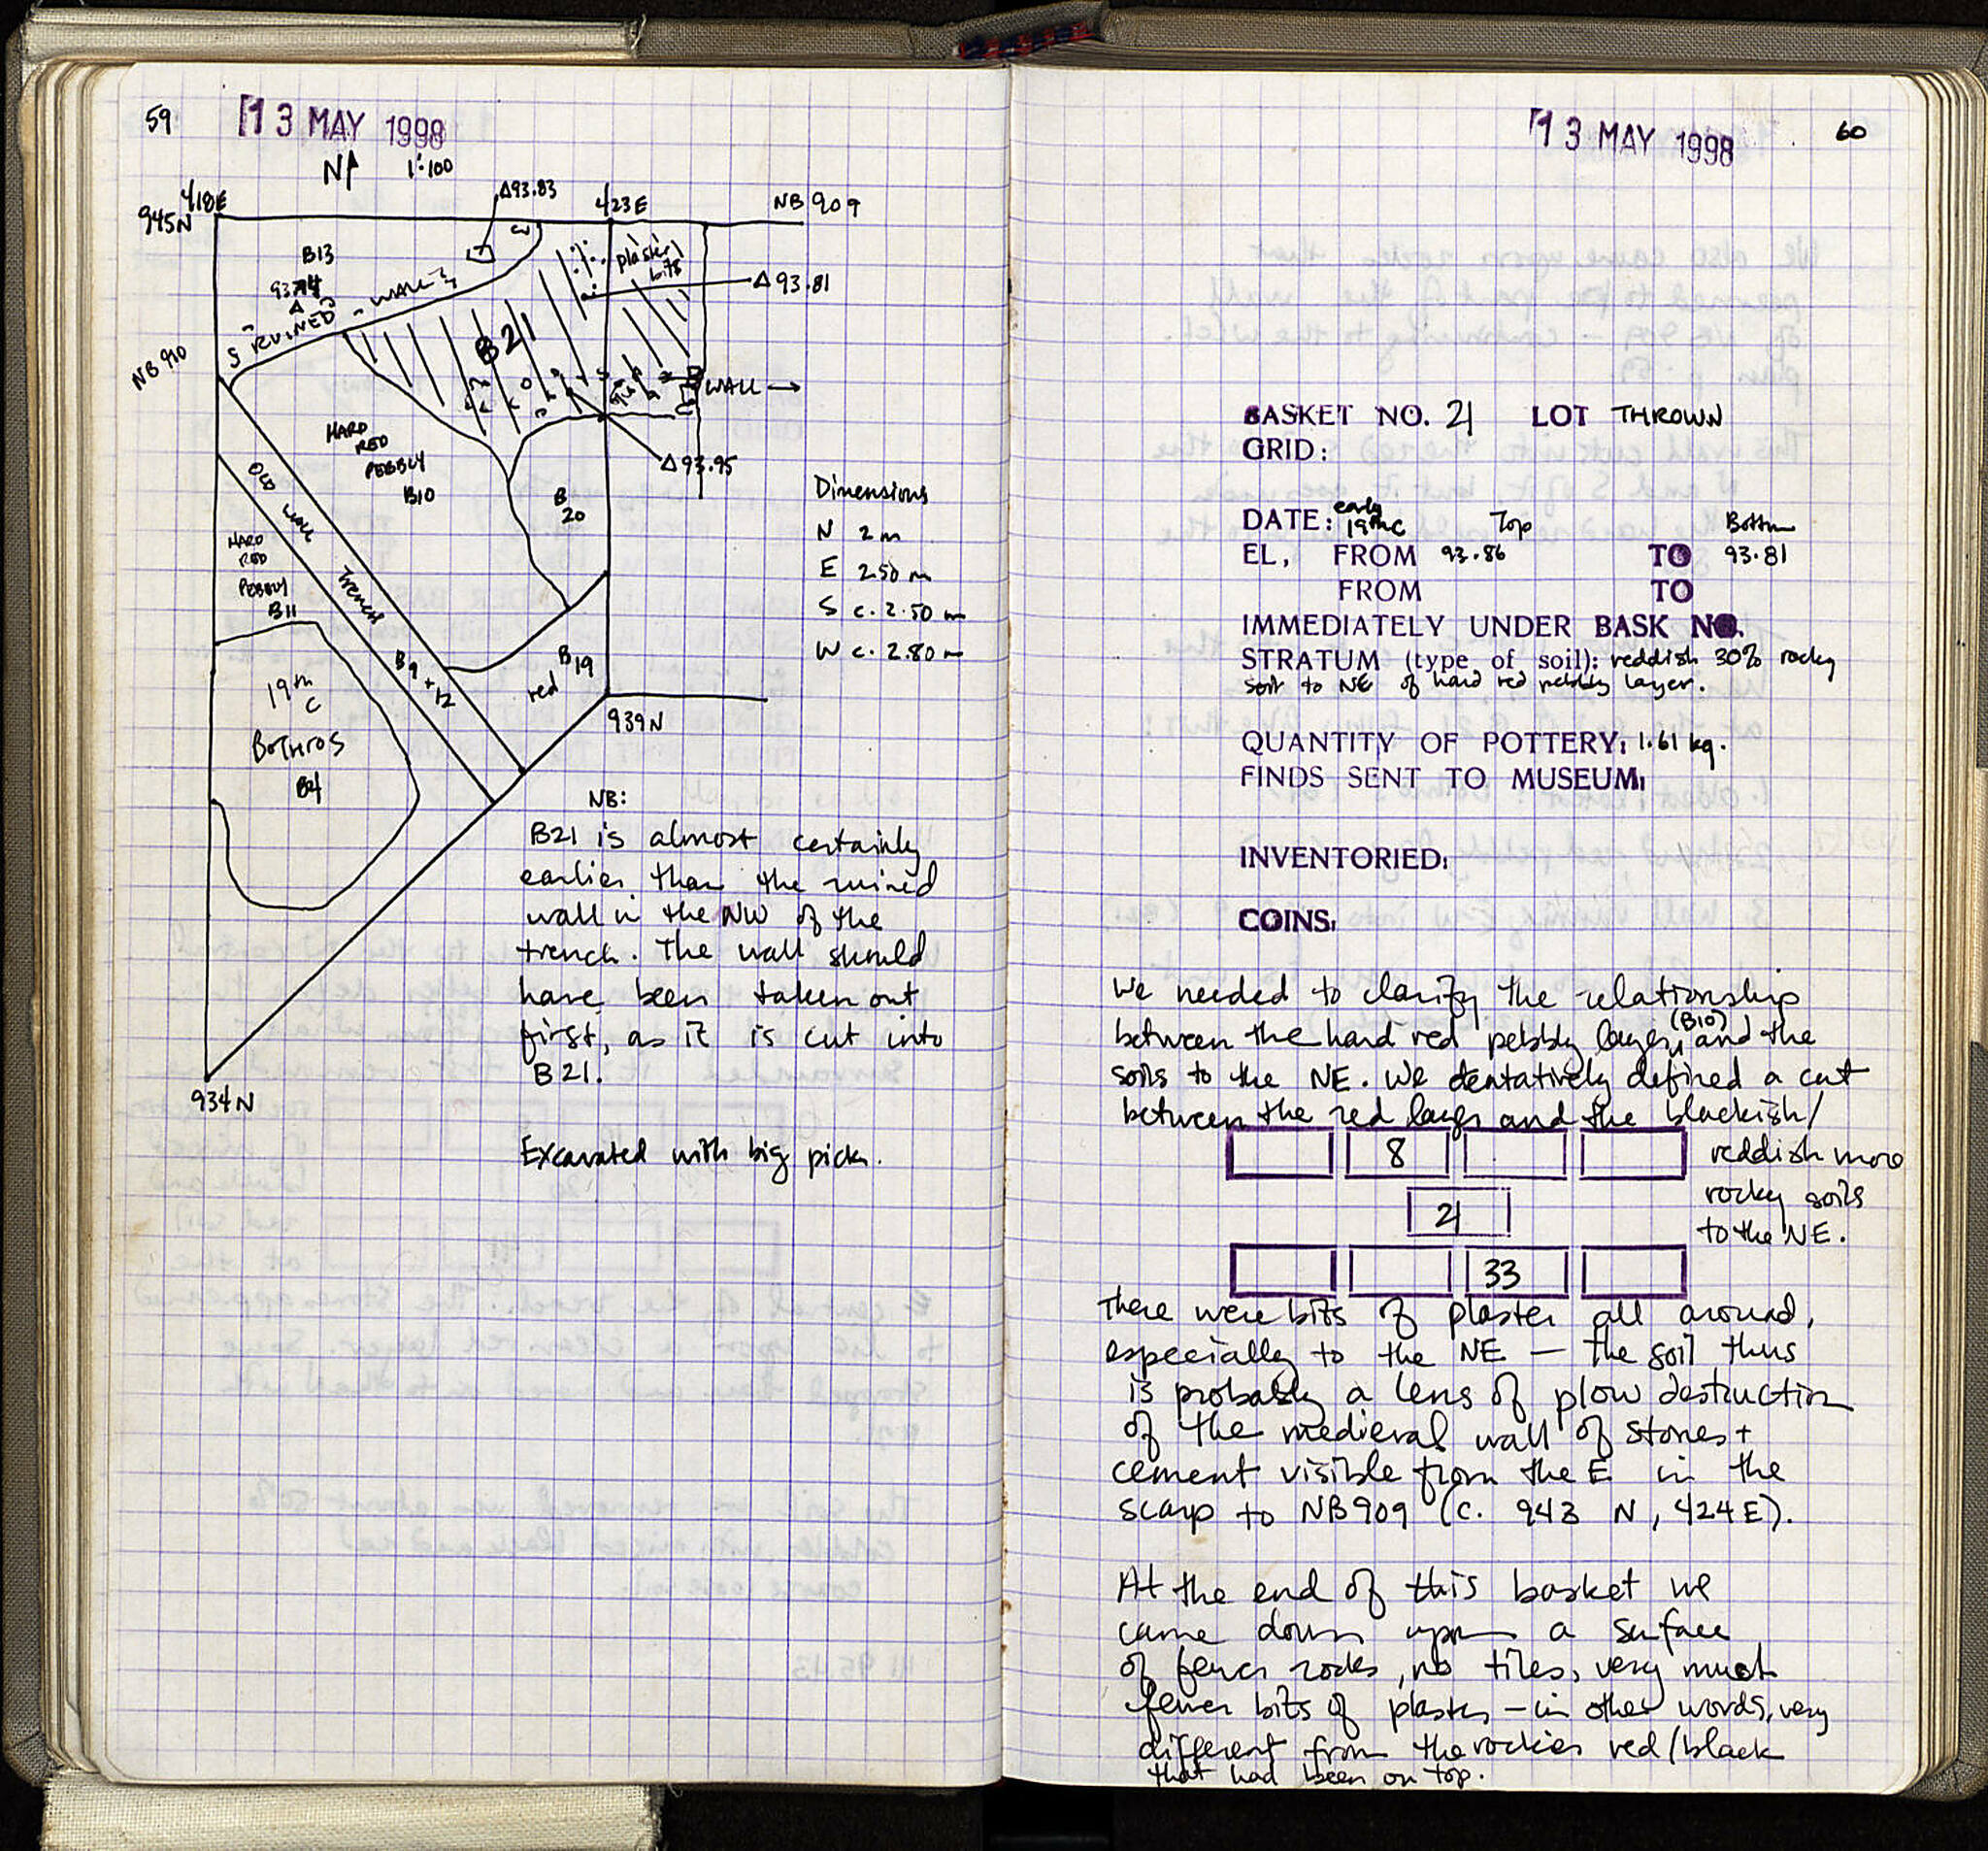 59
13 MAY 1998
N 1:100
Δ93.83
418E
423E
NB 909
945N
B13
plaster
bits
93.74
Δ
Δ 93.81
RUINED - WALL
B21
NB 910
WALL →
HARD
RED
PEBBLY
B10
Δ93.95
OLD WALL Trench
B
20
Dimensions
N 2m
E 2.50 m
S c. 2.50 m
W c. 2.80 m
HARD
RED
PEBBLY
B11
B9 + 12
B19
red
19th
C
939N
BOTHROS
B4
NB:
B21 is almost certainly
earlier than the ruined
wall in the NW of the
trench. The wall should
have been taken out
first, as it is cut into
B21.
934N
Excavated with big pick.
13 MAY 1998
60
BASKET NO. 21 LOT THROWN
GRID:
DATE: early 19thC Top Bottom
EL, FROM 93.86 TO 93.81
FROM TO
IMMEDIATELY UNDER BASK NO.
STRATUM (type of soil): reddish 30% rocky
soil to NE of hard red pebbly layer.
QUANTITY OF POTTERY: 1.61 kg.
FINDS SENT TO MUSEUM:
INVENTORIED:
COINS:
We needed to clarify the relationship
between the hard red pebbly layer (B10) and the
soils to the NE. We tentatively defined a cut
between the red layer and the blackish/
8
reddish more
rocky soils
21
to the NE.
33
There were bits of plaster all around,
especially to the NE — the soil thus
is probably a lens of plow destruction
of the medieval wall of stones +
cement visible from the E in the
scarp to NB909 (c. 943 N, 424E).
At the end of this basket we
came down upon a surface
of fewer rocks, no tiles, very much
fewer bits of plaster — in other words, very
different from the rockier red/black
that had been on top.